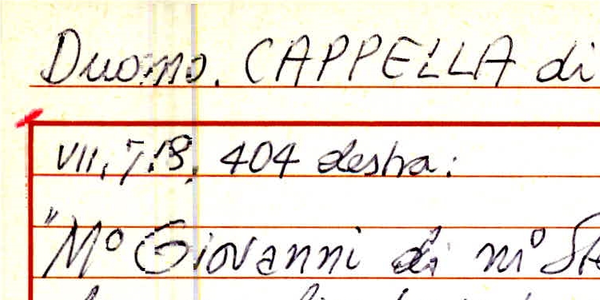 Duomo. CAPPELLA di
VII, 7.13, 404 destra:
"Mº Giovanni di mº